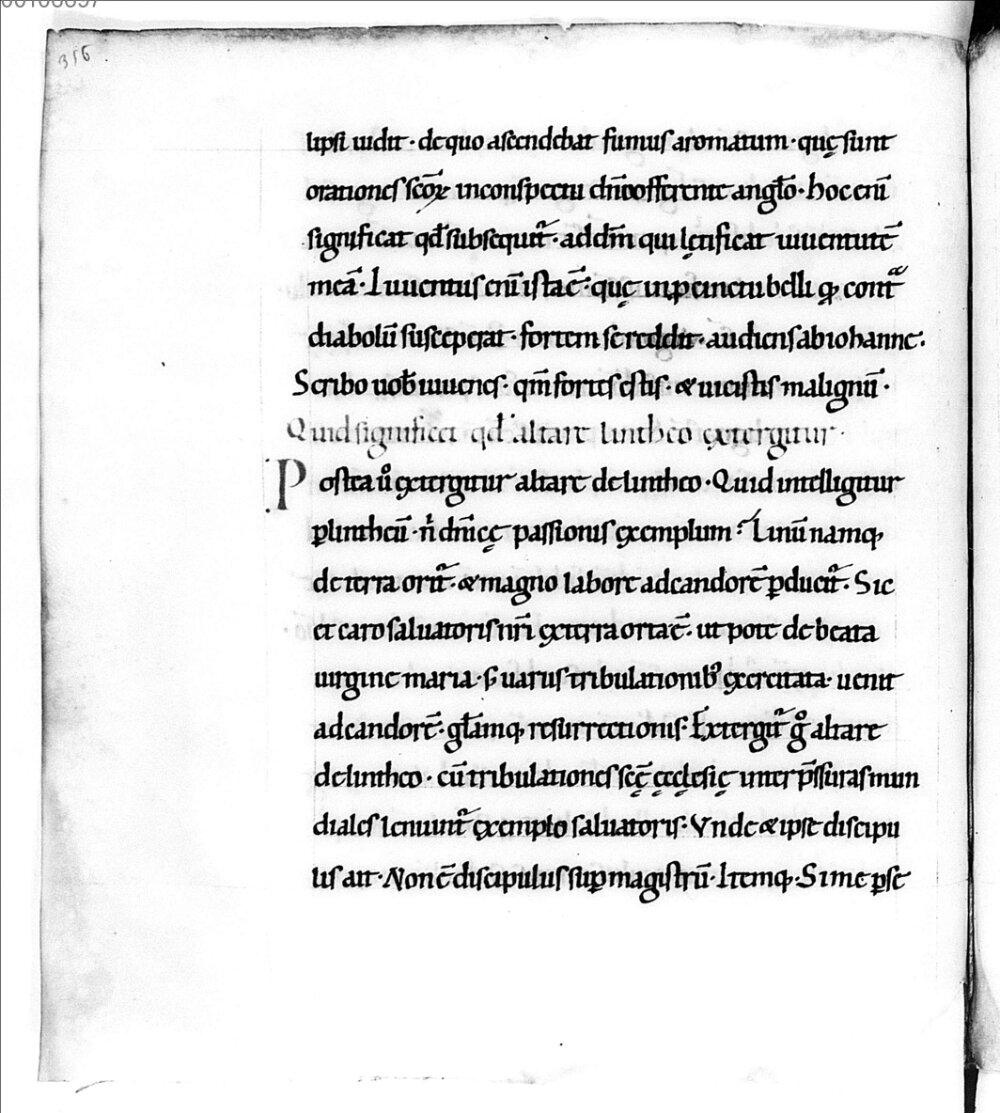 316
lipsi uidit · de quo ascendebat fumus aromatum · quę sunt
orationes scōꝝ in conspectu dn̄i offerente anglo · hoc eni̅
significat qđ subsequit̅ · ad dm̅ qui lętificat iuuentute̅
mea̅ · Iuuentus eni̅ ista e̅ · quę in p̲cinctu belli qđ cont̅ᵃ
diabolu̅ susceperat · fortem se reddit · audiens ab iohanne ·
Scribo uob̅ iuuenes · qm̅ fortes estis · & uicistis malignu̅ ·
Quid significet qđ altare lintheo ęxtergitur ·
Postea ů ęxtergitur altare de lintheo · Quid intelligitur
ꝑ lintheu̅ · n̅ dn̅icę passionis ęxemplum? Linu̅ namq;
de terra orit̅ · & magno labore ad candore̅ ꝑducit̅ · Sic
et caro saluatoris nr̅i ęx terra orta e̅ · ut pote de beata
uirgine maria · s; uariis tribulationib; ęxercitata · uenit
ad candore̅ · gła̅mq; resurrectionis · Extergit̅ gͦ altare
de lintheo · cu̅ tribulationes scę̅ ęcclesię inter p̅ssuras mun
diales leniunt̅ ęxemplo saluatoris · Vnde & ipse discipu
lis ait · Non e̅ discipulus suꝑ magistru̅ · Itemq; · Si me ꝑse